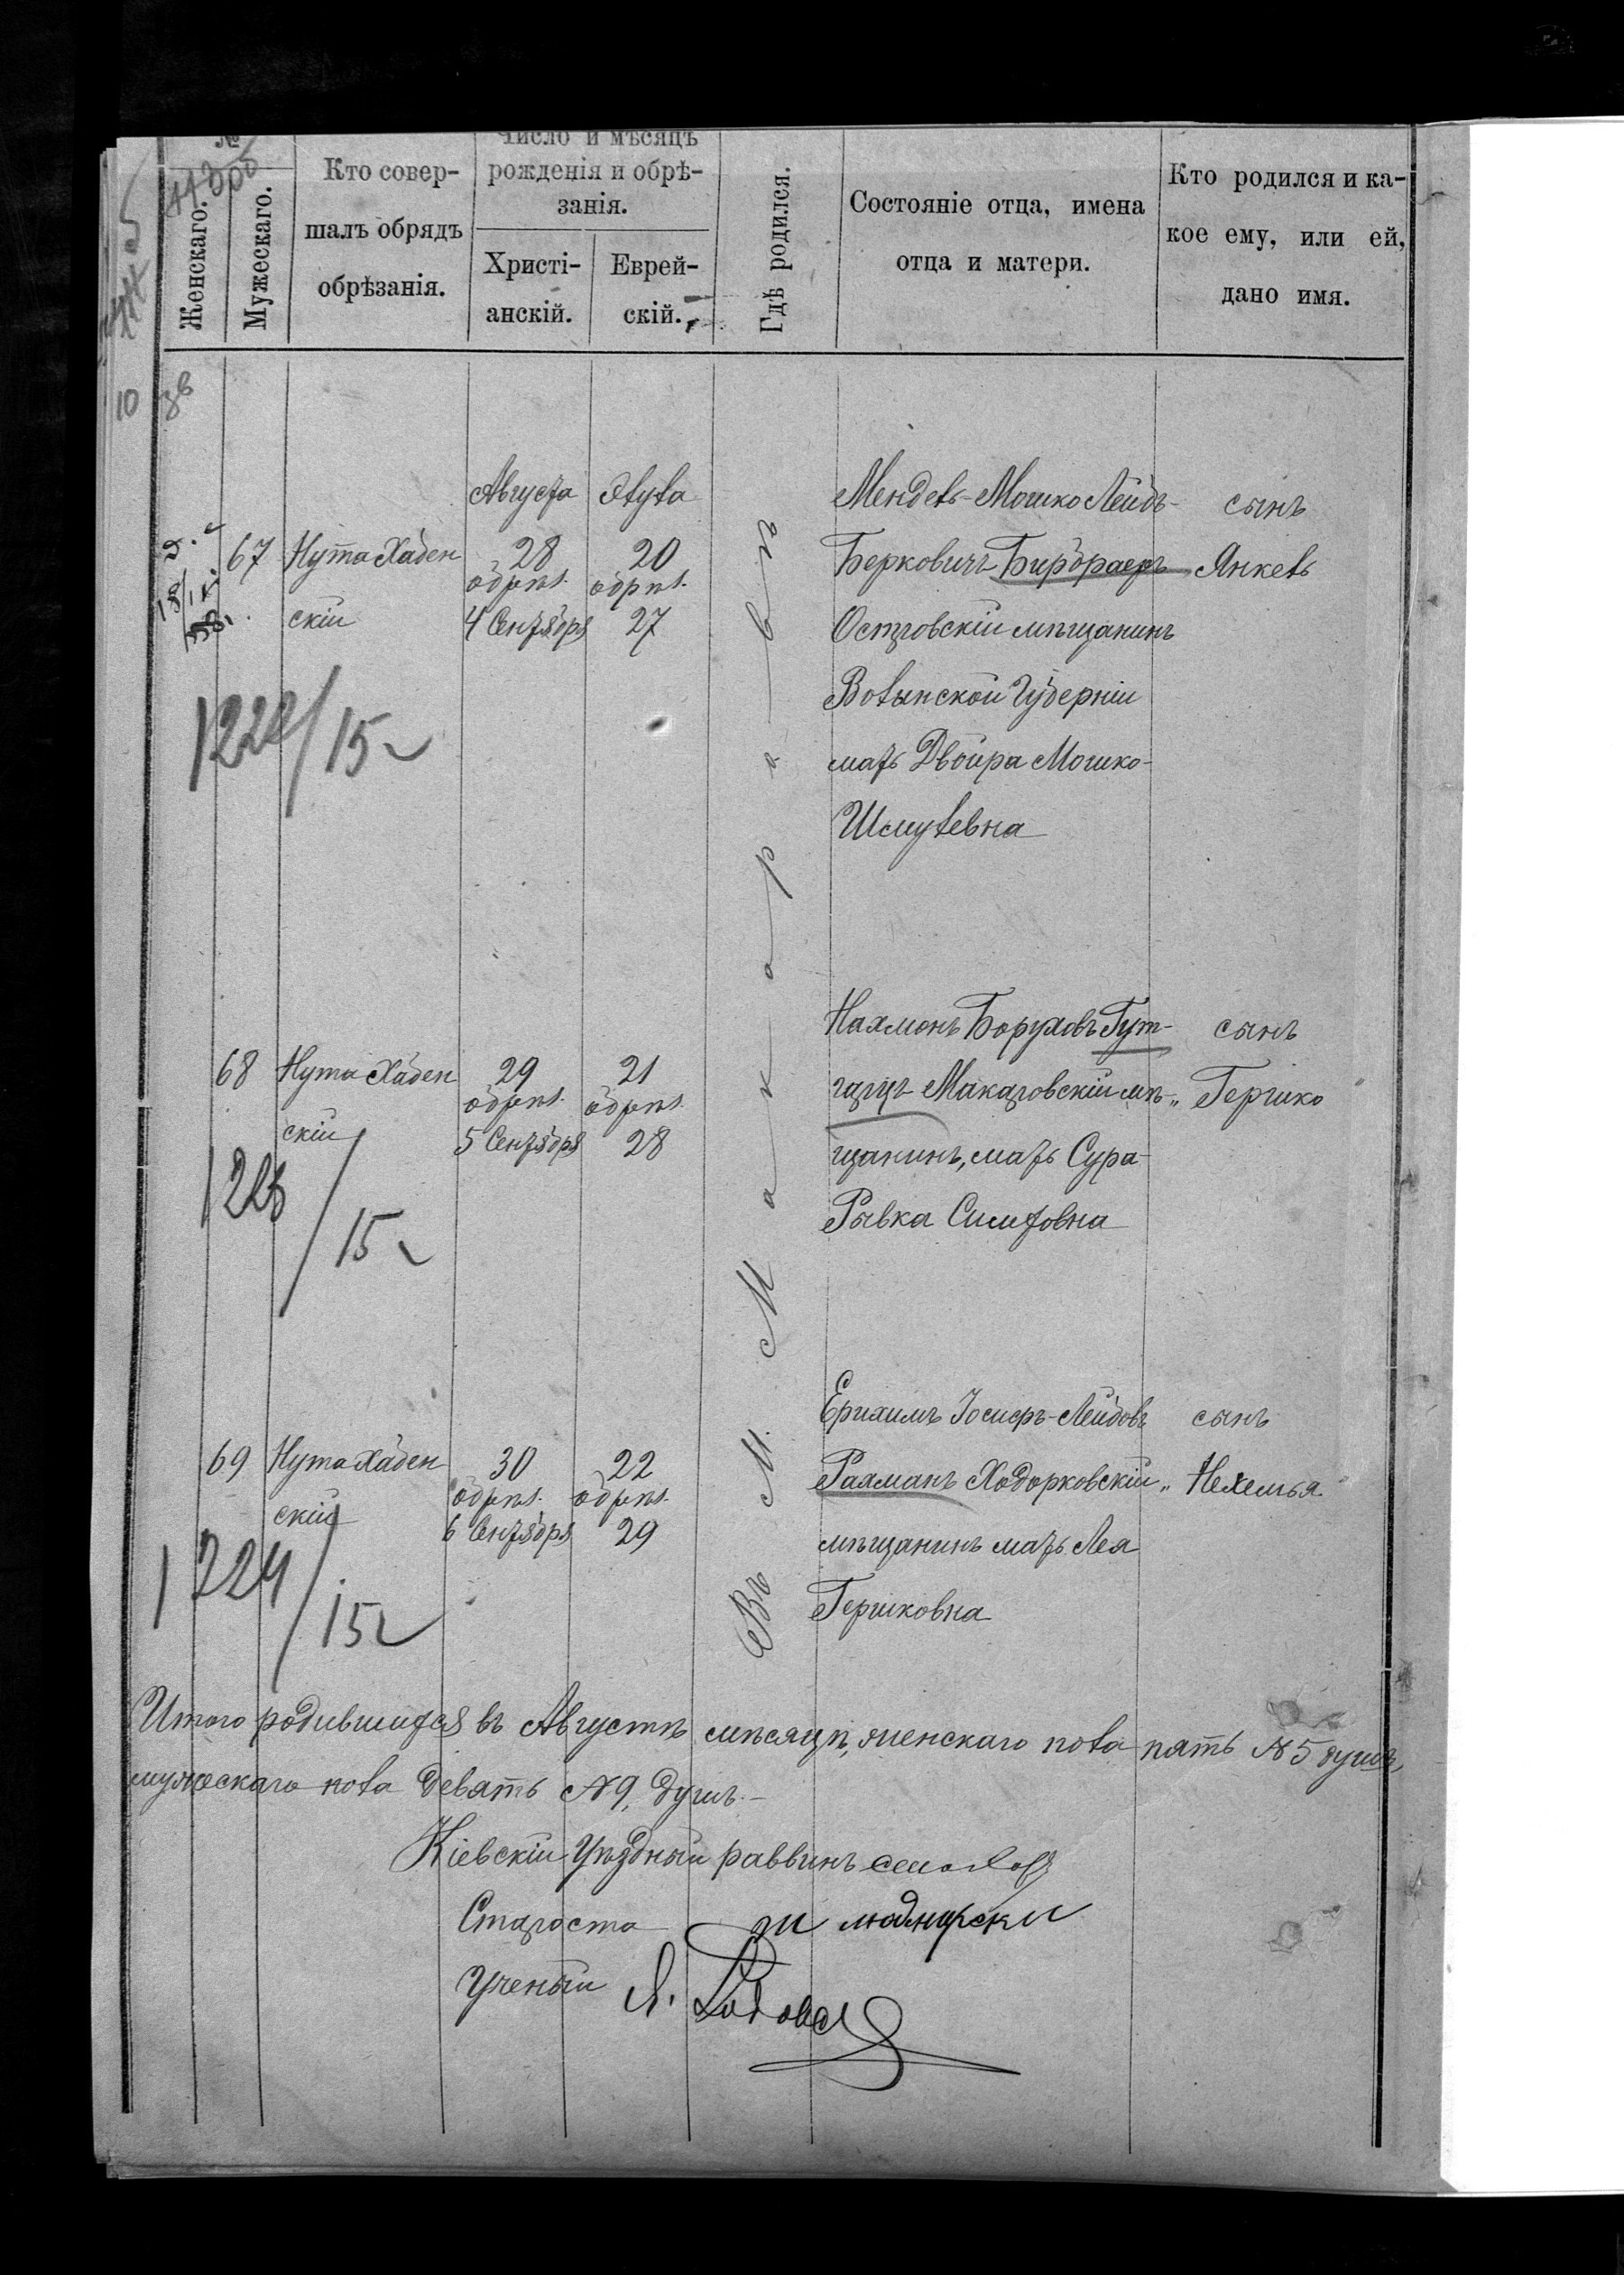 №
Женскаго.
Мужескаго.
Кто совер-
шалъ обрядъ
обрѣзанія.
Число и мѣсяцъ
рожденія и обрѣ-
занія.
Христі-
анскій.
Еврей-
скій.
Гдѣ родился.
Состояніе отца, имена
отца и матери.
Кто родился и ка-
кое ему, или ей,
дано имя.
10
Въ М. Макаровѣ
67
Нута Хаден
скій
Августа
28
обрѣз.
4 Сентября
Элула
20
обрѣз.
27
Мендель-Мошко Лейбъ-
Берковичъ Бирбраеръ
Островскій мѣщанинъ
Волынской Губерніи
мать Двойра Мошко-
Шмулевна
сынъ
Янкель
1222/15
68
Нута Хаден
скій
29
обрѣз.
5 Сентября
21
обрѣз.
28
Нахмонъ Боруховъ Гут-
гарцъ Макаровскій мѣ-
щанинъ, мать Сура-
Рывка Симховна
сынъ
Гершко
1223/15
69
Нута Хаден
скій
30
обрѣз.
6 Сентября
22
обрѣз.
29
Ерихимъ Іосифъ-Лейбовъ
Рахманъ Ходорковскій
мѣщанинъ мать Лея
Гершковна
сынъ
Нехемья
1224/15
Итого родившихся въ Августѣ мѣсяцѣ, женскаго пола пять № 5 душъ,
мужескаго пола девять № 9, душъ.-
Кіевскій Уѣздный раввинъ
Староста
Ученый